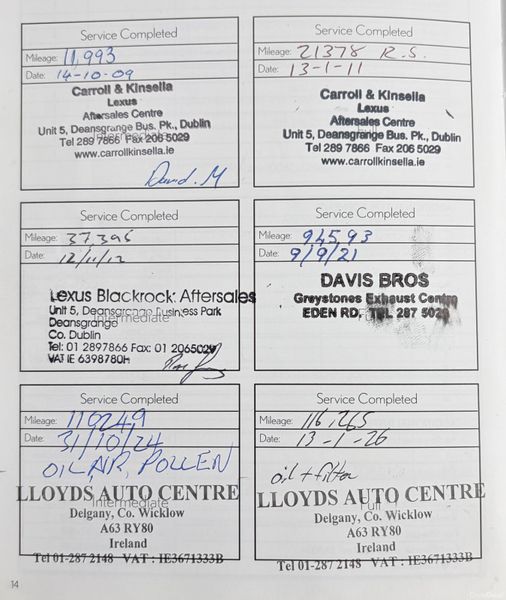 Service Completed
Mileage: 11,993
Date: 14-10-09
Carroll & Kinsella
Lexus
Aftersales Centre
Unit 5, Deansgrange Bus. Pk., Dublin
Intermediate
Tel 289 7866 Fax 206 5029
www.carrollkinsella.ie
David. M
Service Completed
Mileage: 21378 R.S.
Date: 13-1-11
Carroll & Kinsella
Lexus
Aftersales Centre
Unit 5, Deansgrange Bus. Pk., Dublin
Tel 289 7866 Fax 206 5029
www.carrollkinsella.ie
Service Completed
Mileage: 37,395
Date: 12/11/12
Lexus Blackrock Aftersales
Unit 5, Deansgrange Business Park
Intermediate
Deansgrange
Co. Dublin
Tel: 01 2897866 Fax: 01 2065029
VAT IE 6398780H
Service Completed
Mileage: 945,93
Date: 9/9/21
DAVIS BROS
Greystones Exhaust Centre
EDEN RD. TEL 287 5029
Service Completed
Mileage: 110249
Date: 31/10/24
OIL, AIR, POLLEN
LLOYDS AUTO CENTRE
Intermediate
Delgany, Co. Wicklow
A63 RY80
Ireland
Tel 01-287 2148 VAT : IE3671333B
Service Completed
Mileage: 116,265
Date: 13-1-26
oil + filter
LLOYDS AUTO CENTRE
Full
Delgany, Co. Wicklow
A63 RY80
Ireland
Tel 01-287 2148 VAT : IE3671333B
14